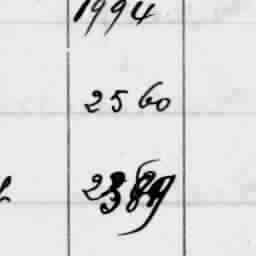 1994
2560
2389